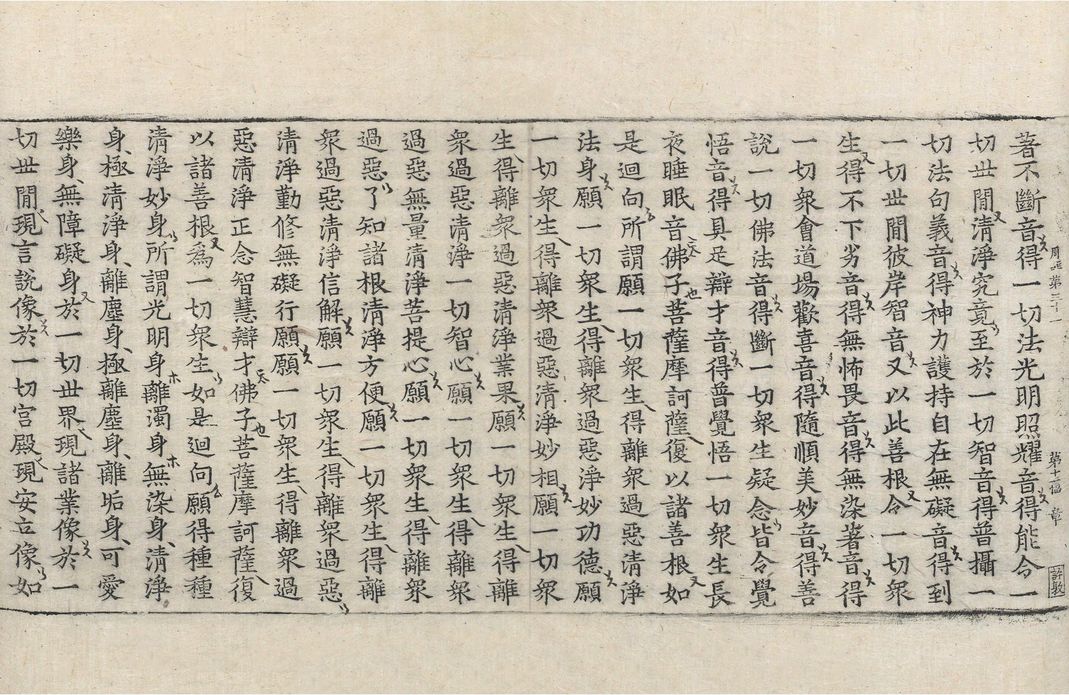 著不斷音得一切法光明照耀音得能令一
切世間清淨究竟至於一切智音得普攝一
切法句義音得神力護持自在無礙音得到
一切世間彼岸智音又以此善根令一切衆
生得不下劣音得無怖畏音得無染著音得
一切衆會道場歡喜音得隨順美妙音得善
說一切佛法音得斷一切衆生疑念皆令覺
悟音得具足辯才音得普覺悟一切衆生長
夜睡眠音佛子菩薩摩訶薩復以諸善根如
是迴向所謂願一切衆生得離衆過惡清淨
法身願一切衆生得離衆過惡淨妙功德願
一切衆生得離衆過惡清淨妙相願一切衆
生得離衆過惡清淨業果願一切衆生得離
衆過惡清淨一切智心願一切衆生得離衆
過惡無量清淨菩提心願一切衆生得離衆
過惡了知諸根清淨方便願一切衆生得離
衆過惡清淨信解願一切衆生得離衆過惡
清淨勤修無礙行願願一切衆生得離衆過
惡清淨正念智慧辯才佛子菩薩摩訶薩復
以諸善根爲一切衆生如是迴向願得種種
清淨妙身所謂光明身離濁身無染身清淨
身極清淨身離塵身極離塵身離垢身可愛
樂身無障礙身於一切世界現諸業像於一
切世間現言說像於一切宮殿現安立像如